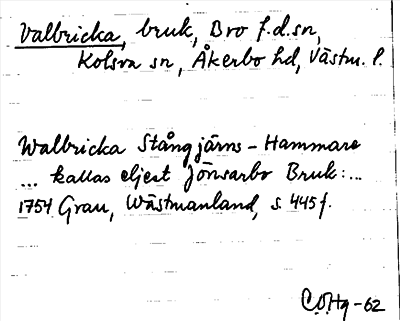 Valbricka, bruk, Bro f.d. sn,
Kolsva sn, Åkerbo hd, Västm. l.
Walbricka Stångjärns-Hammare
... kallas eljest Jönsarbo Bruk:...
1754 Grau, Wästmanland, s. 445 f.
C.O.Hg-62